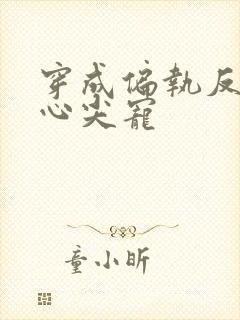 穿成偏執反
心尖寵
童小昕